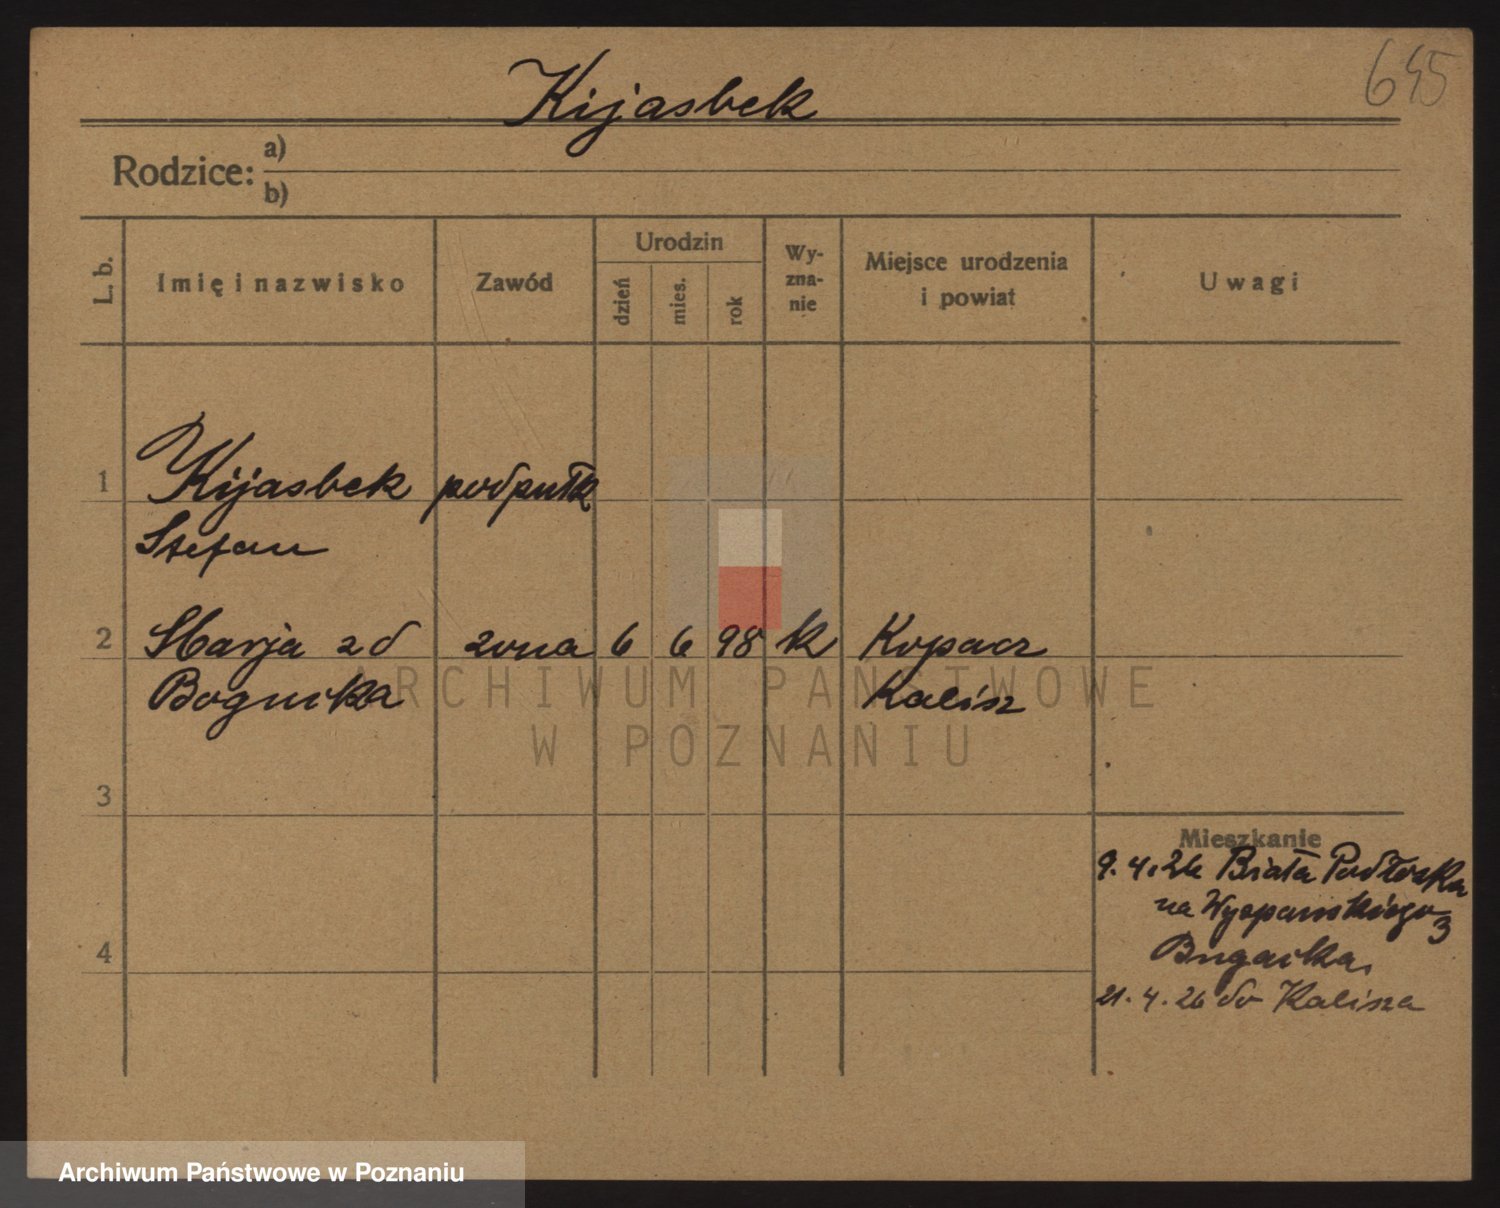 645
Kijasbek
Rodzice: a)
b)
L. b.
Imię i nazwisko
Zawód
Urodzin
dzień
mies.
rok
Wy-
zna-
nie
Miejsce urodzenia
i powiat
Uwagi
1 Kijasbek podpułk
Stefan
2 Marja zd żona 6 6 98 k Kopacz
Kalisz
ARCHIWUM PAŃSTWOWE
W POZNANIU
3
4
Mieszkanie
9.4.26 Biała Podlaska
na Wyspiańskiego 3
21.4.26 do Kalisza
Archiwum Państwowe w Poznaniu